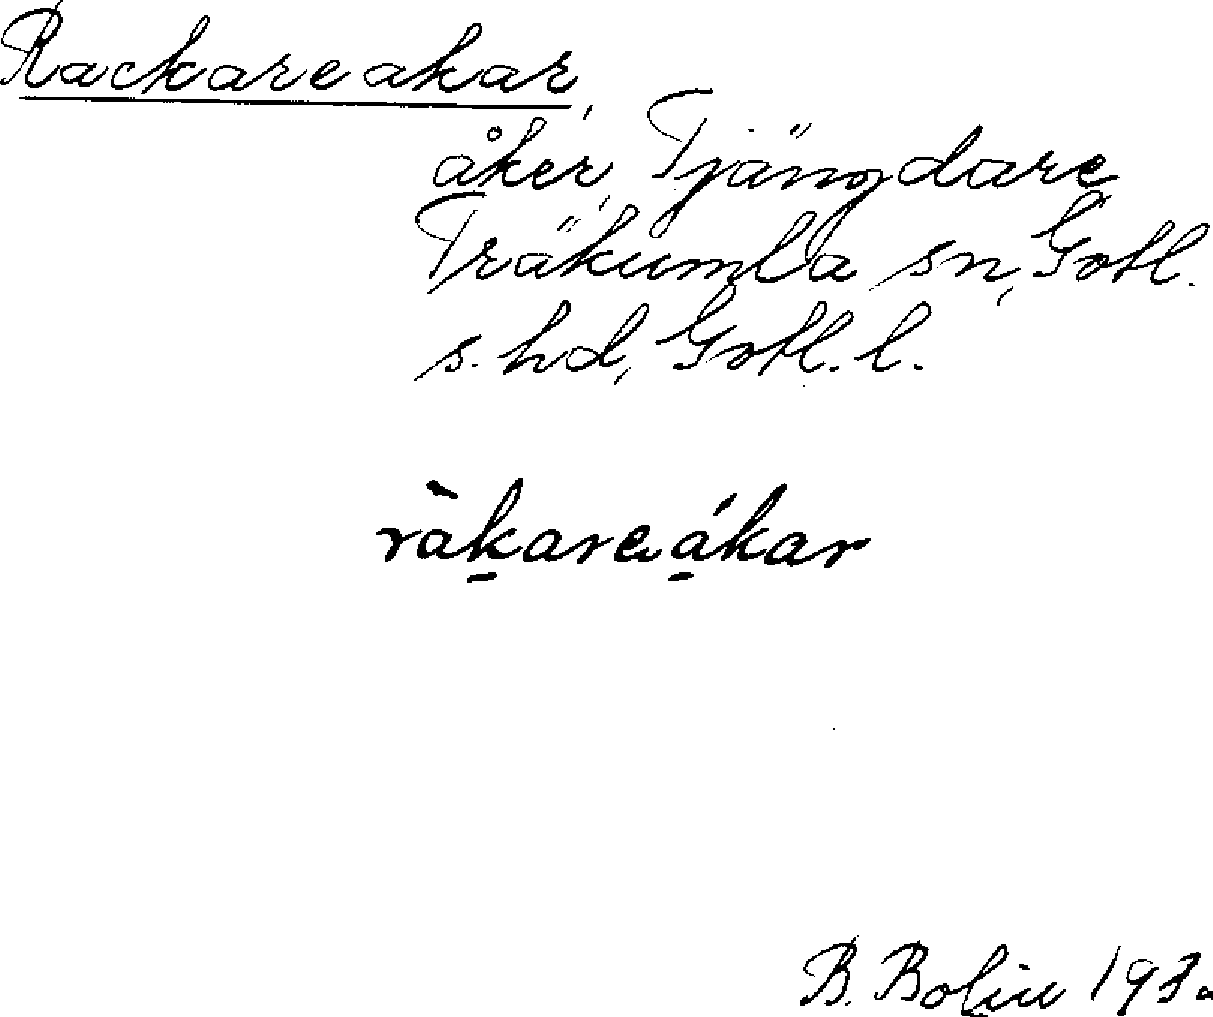 Rackareakar,
åker, Tjängdare
Träkumla sn, Gotl.
s. hd, Gotl. l.
ràkareákar
B. Bolin 193